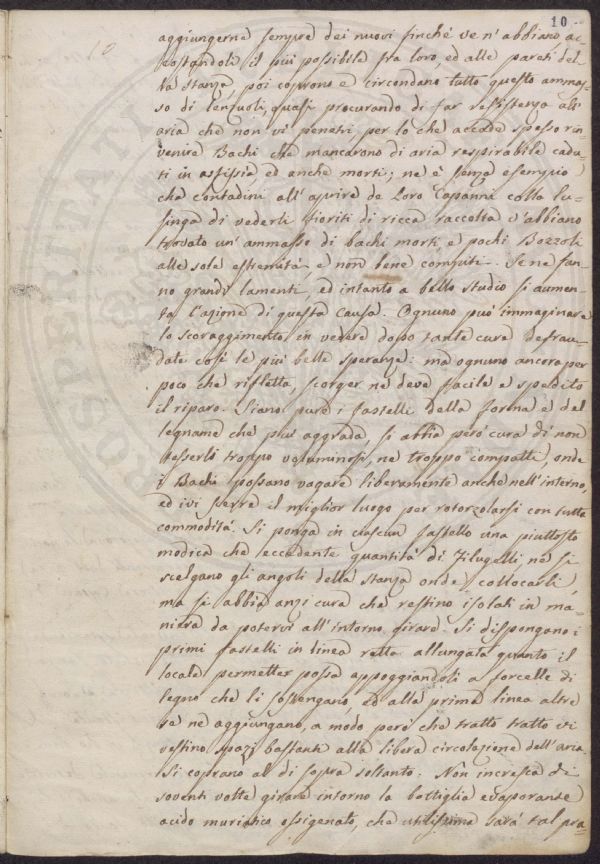 10
aggiungerne sempre dei nuovi finchè ve n'abbiano ac-
costandoli il più possibile fra loro, ed alle pareti del-
la stanza, poi coprono e circondano tutto questo ammas-
so di lenzuoli, quasi procurando di far resistenza all'
aria che non vi penetri, per lo che accade spesso rin
venire Bachi che mancarono di aria respirabile cadu-
ti in asfissia ed anche morti; ne è senza esempio
che contadini all'aprire de Loro Capanni colla lu-
singa di vederli fioriti di ricca raccolta v'abbiano
trovato un'ammasso di bachi morti, e pochi Bozzoli
alle sole estremità e non bene compiuti. Se ne fan-
no grandi lamenti, ed intanto a bello studio si aumen-
ta l'azione di questa causa. Ognuno può immaginare
lo scoraggimento in vedere dopo tante cure defrau-
date così le più belle speranze: ma ognuno ancora per
poco che rifletta, scorger ne deve facile e spedito
il riparo. Siano pure i fastelli della forma e del
legname che più aggrada, si abbia però cura di non
esserli troppo voluminosi, ne troppo compatti, onde
i Bachi possano vagare liberamente anche nell'interno,
ed ivi il miglior luogo per rotorzolarsi con tutta
commodità. Si ponga in ciascun fastello una piuttosto
modica che eccedente quantità di Filugelli ne si
scelgano gli angoli della stanza onde collocarli,
ma si abbia anzi cura che restino isolati in ma-
niera da potervi all'intorno girare. Si dispongano i
primi fastelli in linea retta allungata quanto il
locale permetter possa appoggiandoli a forcelle di
legno che li sostengano, ed alla prima linea altre
se ne aggiungano, a modo però che tratto tratto vi
restino spazj bastanti alla libera circolazione dell'aria.
Si coprano al di sopra soltanto. Non incresca di
soventi volte girare intorno la bottiglia evaporante
acido muriatico ossigenato, che utilissima sarà tal pra-